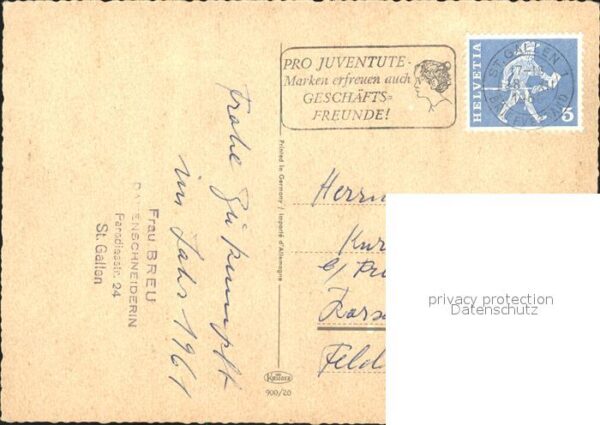 PRO JUVENTUTE-
Marken erfreuen auch
GESCHÄFTS=
FREUNDE!
HELVETIA
ST. GALLEN 1
5
Frohe Zukunft
im Jahr 1961
Frau BREU
DAMENSCHNEIDERIN
Paradiesstr. 24
St. Gallen
Printed in Germany / Importé d'Allemagne
Krüger
900/20
Herrn
Kur
Feld
privacy protection
Datenschutz